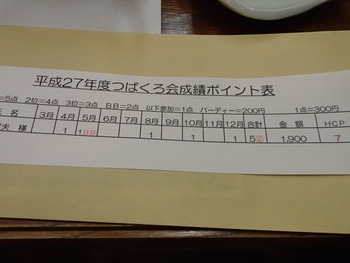 平成27年度つばくろ会成績ポイント表
=5点 2位=4点 3位=3点 BB=2点 以下参加=1点 バーディー=200円 1点=300円
名 3月 4月 5月 6月 7月 8月 9月 10月 11月 12月 合計 金額 HCP
夫 様 1 1BB 1 1 1 5② 1,900 7